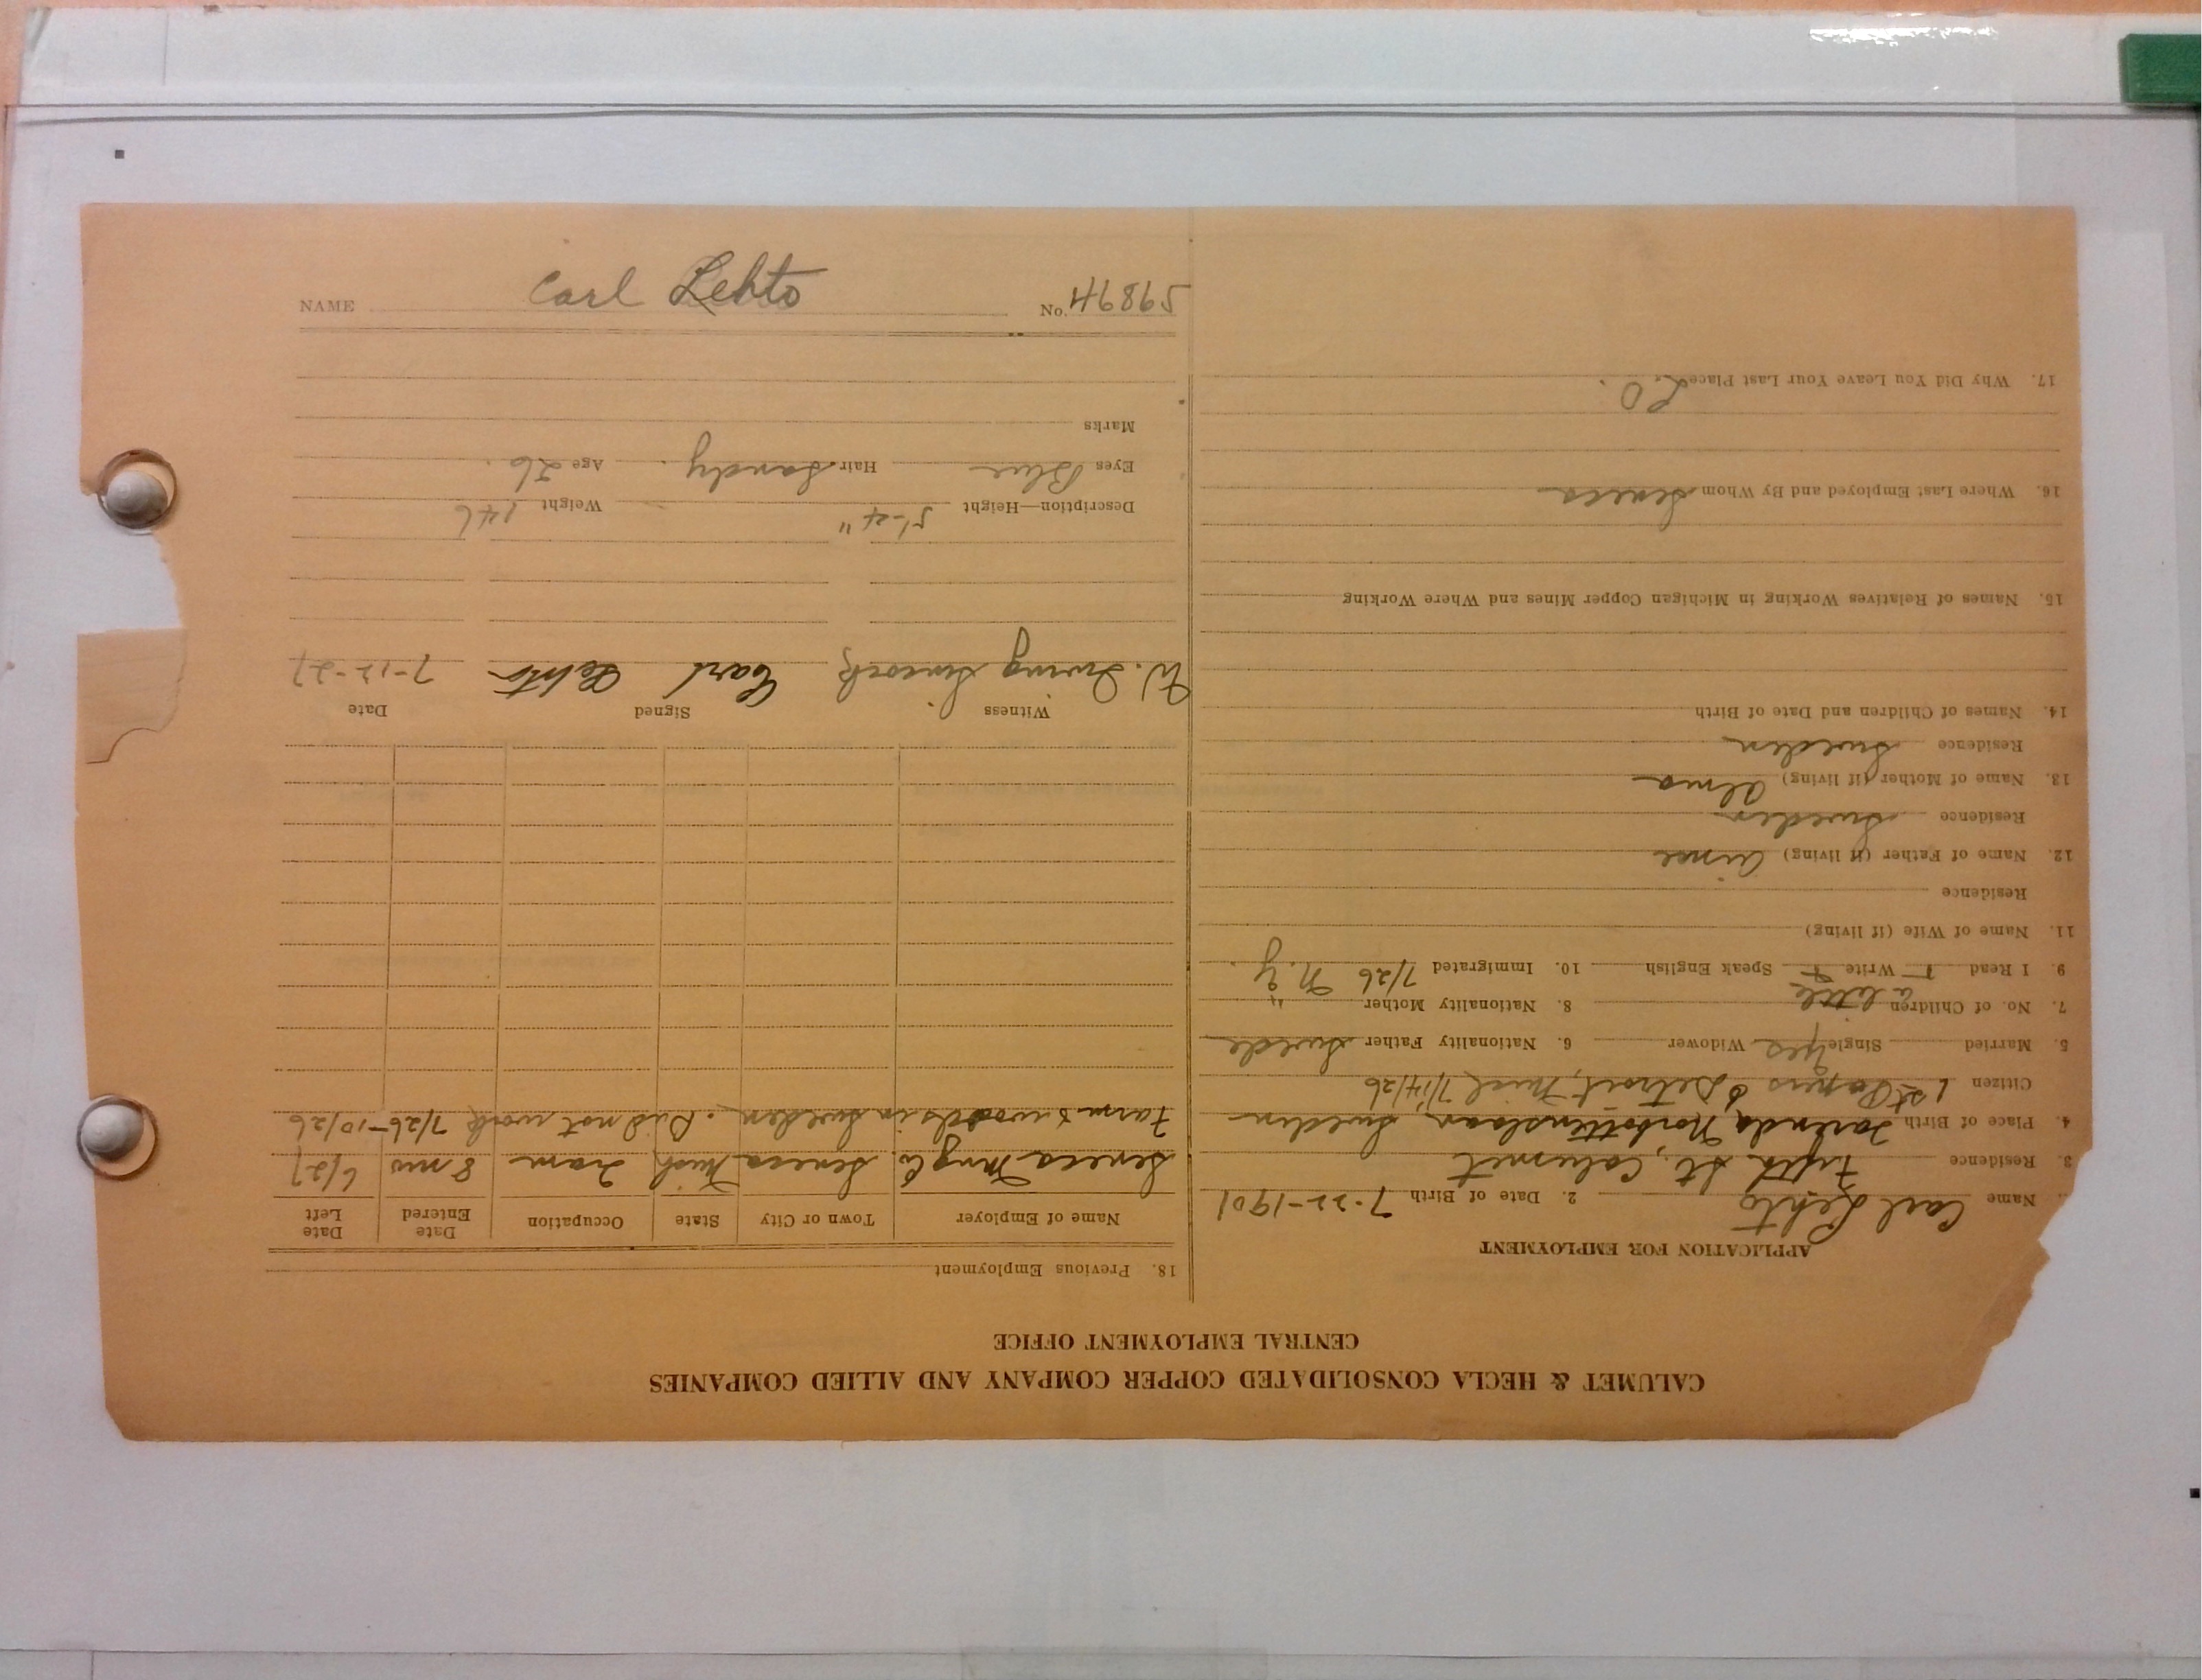 CALUMET & HECLA CONSOLIDATED COPPER COMPANY AND ALLIED COMPANIES
CENTRAL EMPLOYMENT OFFICE
APPLICATION FOR EMPLOYMENT
Name Carl Lehto 2. Date of Birth 7-22-1901
3. Residence Fifth St., Calumet
4. Place of Birth Tarenda, Norbottenslaan, Sweden
Citizen 1st Papers Detroit, Mich 7/14/26
5. Married Single Yes Widower 6. Nationality Father Swede
7. No. of Children 8. Nationality Mother "
a little
9. I Read + Write + Speak English 10. Immigrated 7/26 N.Y.
11. Name of Wife (if living)
Residence
12. Name of Father (if living)
Residence Sweden
13. Name of Mother (if living) Alma
Residence Sweden
14. Names of Children and Date of Birth
15. Names of Relatives Working in Michigan Copper Mines and Where Working
16. Where Last Employed and By Whom Seneca
17. Why Did You Leave Your Last Place L.O.
18. Previous Employment
Name of Employer Town or City State Occupation Date Entered Date Left
Seneca Mng Co. Seneca Mich Tram 8 mos 6/27
Farm & woods in Sweden. Did not work 7/26-10/26
Witness Signed Date
W. Irving Carl Lehto 7-12-27
Description—Height 5'-4" Weight 146
Eyes Blue Hair Sandy. Age 26.
Marks
NAME Carl Lehto No. 59894